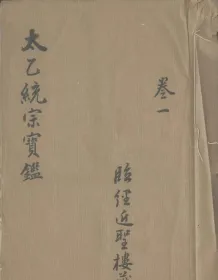 卷一
太乙統宗寶鑑
臨徑近聖樓